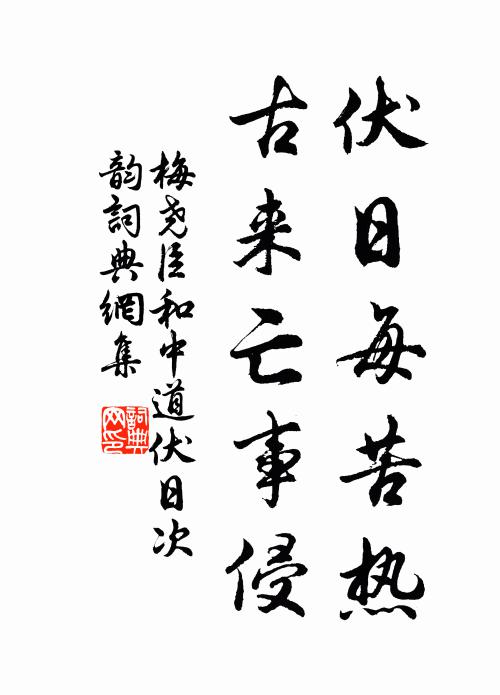 伏日每苦热
古来亡事侵
梅尧臣和中道伏日次
韵詞典網集
詞典网印